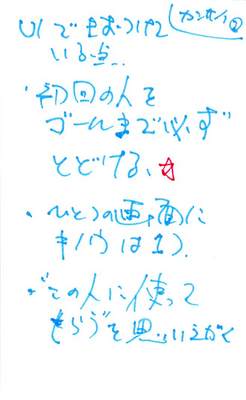 UIで気をつけて
いる点..
・初回の人を
ゴールまで必ず
とどける、☆
・ひとつの画面に
キノウは1つ.
・"この人に使って
もらう"を思いえがく